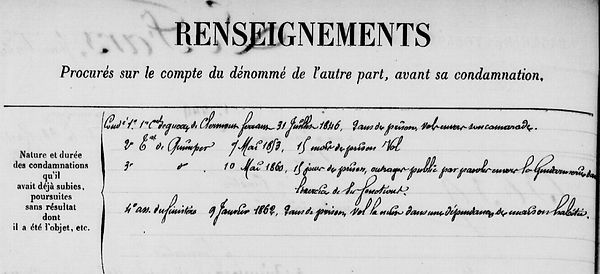 RENSEIGNEMENTS
Procurés sur le compte du dénommé de l'autre part, avant sa condamnation.
Nature et durée
des condamnations
qu'il
avait déjà subies,
poursuites
sans résultat
dont
il a été l'objet, etc.
1º 1er de guerre de Clermont ferrand 31 Juillet 1846, 2 ans de prison, vol envers son camarade.
2º de Quimper 7 Mai 1853, 15 mois de prison Vol
3º dº 10 Mai 1860, 15 jours de prison, outrage public par paroles envers la Gendarmerie dans
l'exercice de ses fonctions
4º ass. du finistère 9 Janvier 1862, 2 ans de prison, Vol la nuit dans une dépendance de maison habitée.